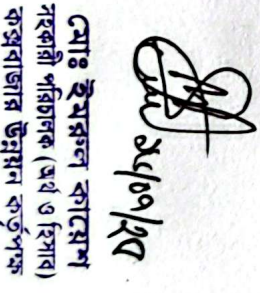 মোঃ ইমরুল কায়েশ
সহকারী পরিচালক (অর্থ ও হিসাব)
কক্সবাজার উন্নয়ন কর্তৃপক্ষ